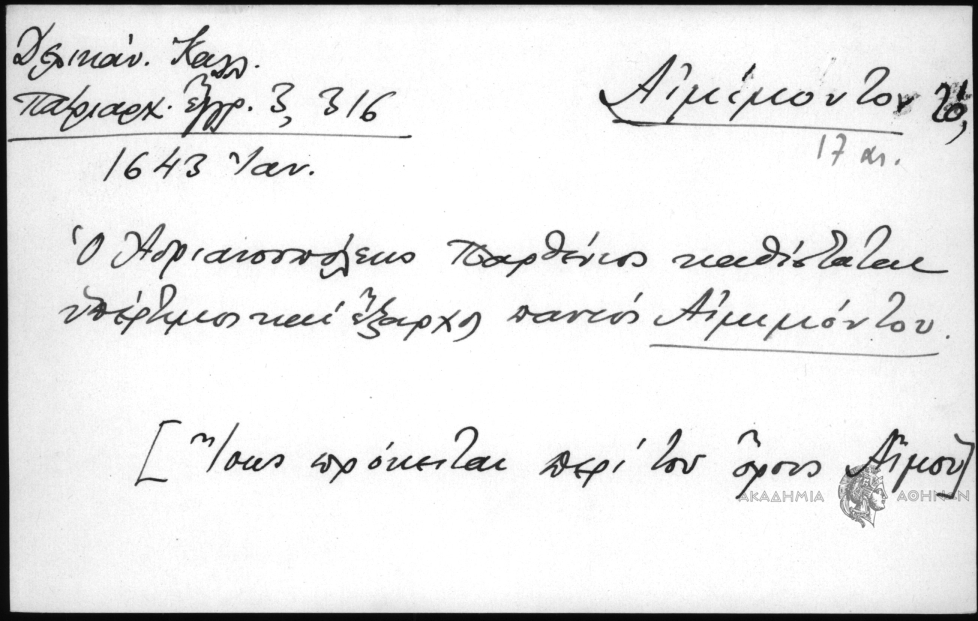 Δελικάν. Καλλ.
Πατριαρχ. ἔγγρ. 3, 316
1643 Ἰαν.
Αἱμίμοντον τό,
17 αι.
Ὁ Ἀδριανουπόλεως Παρθένιος καθίσταται
ὑπέρτιμος καί ἔξαρχος παντός Αἱμιμόντου.
[Ἴσως πρόκειται περί τοῦ ὄρους Αἵμου]
ΑΚΑΔΗΜΙΑ ΑΘΗΝΩΝ